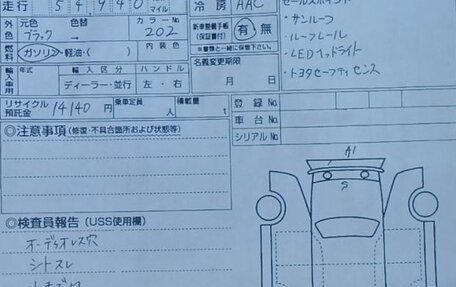 走行 54940 マイル 冷房 AAC
セールスポイント
外色 元色 ブラック 色替 → カラーNo. 202
新車整備手帳(保証書付) 有・無
※書類と一緒に保管下さい。
・サンルーフ
・ルーフレール
・LEDヘッドライト
・トヨタセーフティセンス
燃料 ガソリン・軽油・( ) 内装色
名義変更期限
月 日
輸入車用 年式 輸入区分 ハンドル
ディーラー・並行 左・右
リサイクル預託金 14140円 乗車定員 人 積載量 t
登録No.
車台No.
シリアルNo.
◎注意事項(修復・不具合箇所および状態等)
A1
S
◎検査員報告(USS使用欄)
オーディオレス穴
シトスレ